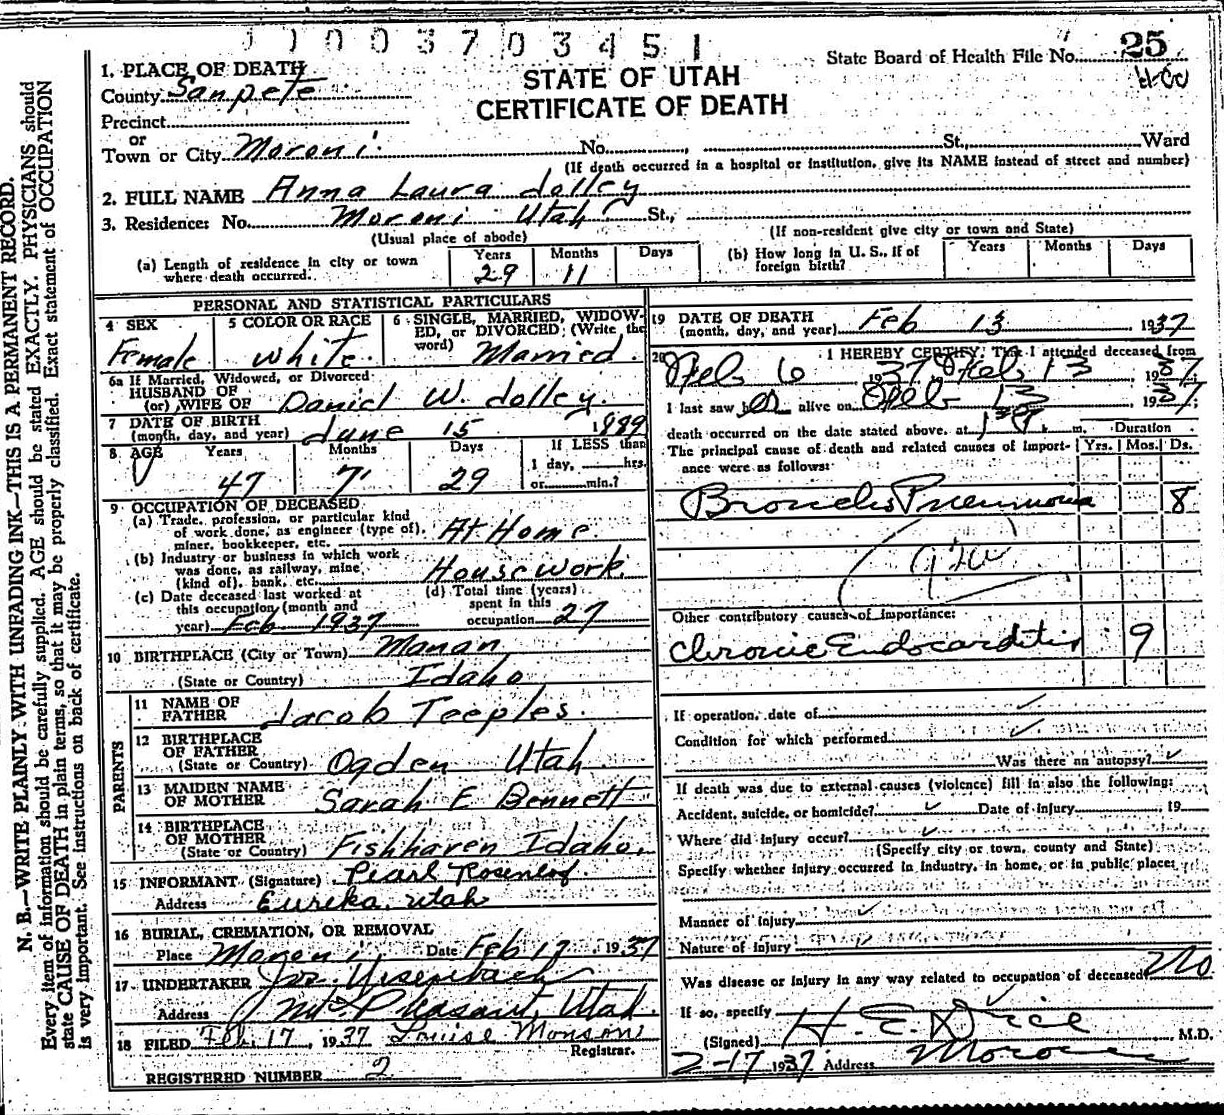 1 1 0 0 3 7 0 3 4 5 1
State Board of Health File No. 25
STATE OF UTAH
CERTIFICATE OF DEATH
1. PLACE OF DEATH
County Sanpete
Precinct
or
Town or City Moroni No. , St., Ward
(If death occurred in a hospital or institution, give its NAME instead of street and number)
2. FULL NAME Anna Laura Jolley
3. Residence: No. Moroni Utah St.,
(Usual place of abode) (If non-resident give city or town and State)
(a) Length of residence in city or town where death occurred. Years 29 Months 11 Days
(b) How long in U. S., if of foreign birth? Years Months Days
PERSONAL AND STATISTICAL PARTICULARS
4 SEX Female
5 COLOR OR RACE White
6 SINGLE, MARRIED, WIDOWED, or DIVORCED: (Write the word) Married
6a If Married, Widowed, or Divorced
HUSBAND OF
(or) WIFE OF Daniel W. Jolley
7 DATE OF BIRTH
(month, day, and year) June 15 1889
8 AGE Years 47 Months 7 Days 29 If LESS than 1 day, hrs. or min.?
9 OCCUPATION OF DECEASED
(a) Trade, profession, or particular kind of work done, as engineer (type of), miner, bookkeeper, etc. At Home
(b) Industry or business in which work was done, as railway, mine (kind of), bank, etc. House work
(c) Date deceased last worked at this occupation (month and year) Feb 1937
(d) Total time (years) spent in this occupation 27
10 BIRTHPLACE (City or Town) Manan
(State or Country) Idaho
PARENTS
11 NAME OF FATHER Jacob Teeples
12 BIRTHPLACE OF FATHER
(State or Country) Ogden Utah
13 MAIDEN NAME OF MOTHER Sarah E Bennett
14 BIRTHPLACE OF MOTHER
(State or Country) Fishhaven Idaho
15 INFORMANT (Signature) Pearl Rosenlof
Address Eureka, Utah
16 BURIAL, CREMATION, OR REMOVAL
Place Moroni Date Feb 17 1937
17 UNDERTAKER Jos. Ursenbach
Address Mt. Pleasant, Utah
18 FILED Feb. 17, 1937 Louise Monson
Registrar.
REGISTERED NUMBER 2
19 DATE OF DEATH
(month, day, and year) Feb 13 1937
20 I HEREBY CERTIFY, That I attended deceased from
Feb 6 1937 Feb 13 1937
I last saw alive on Feb 13, 1937;
death occurred on the date stated above, at m. Duration
The principal cause of death and related causes of importance were as follows: Yrs. Mos. Ds.
Broncho Pneumonia 8
Other contributory causes of importance:
Chronic Endocarditis 9
If operation, date of
Condition for which performed
Was there an autopsy?
If death was due to external causes (violence) fill in also the following:
Accident, suicide, or homicide? Date of injury 19
Where did injury occur?
(Specify city or town, county and State)
Specify whether injury occurred in industry, in home, or in public place
Manner of injury
Nature of injury
Was disease or injury in any way related to occupation of deceased? No
If so, specify
(Signed) H. E. Dice M.D.
2-17 1937 Address Moroni
N. B.—WRITE PLAINLY WITH UNFADING INK—THIS IS A PERMANENT RECORD.
Every item of information should be carefully supplied. AGE should be stated EXACTLY. PHYSICIANS should
state CAUSE OF DEATH in plain terms, so that it may be properly classified. Exact statement of OCCUPATION
is very important. See instructions on back of certificate.